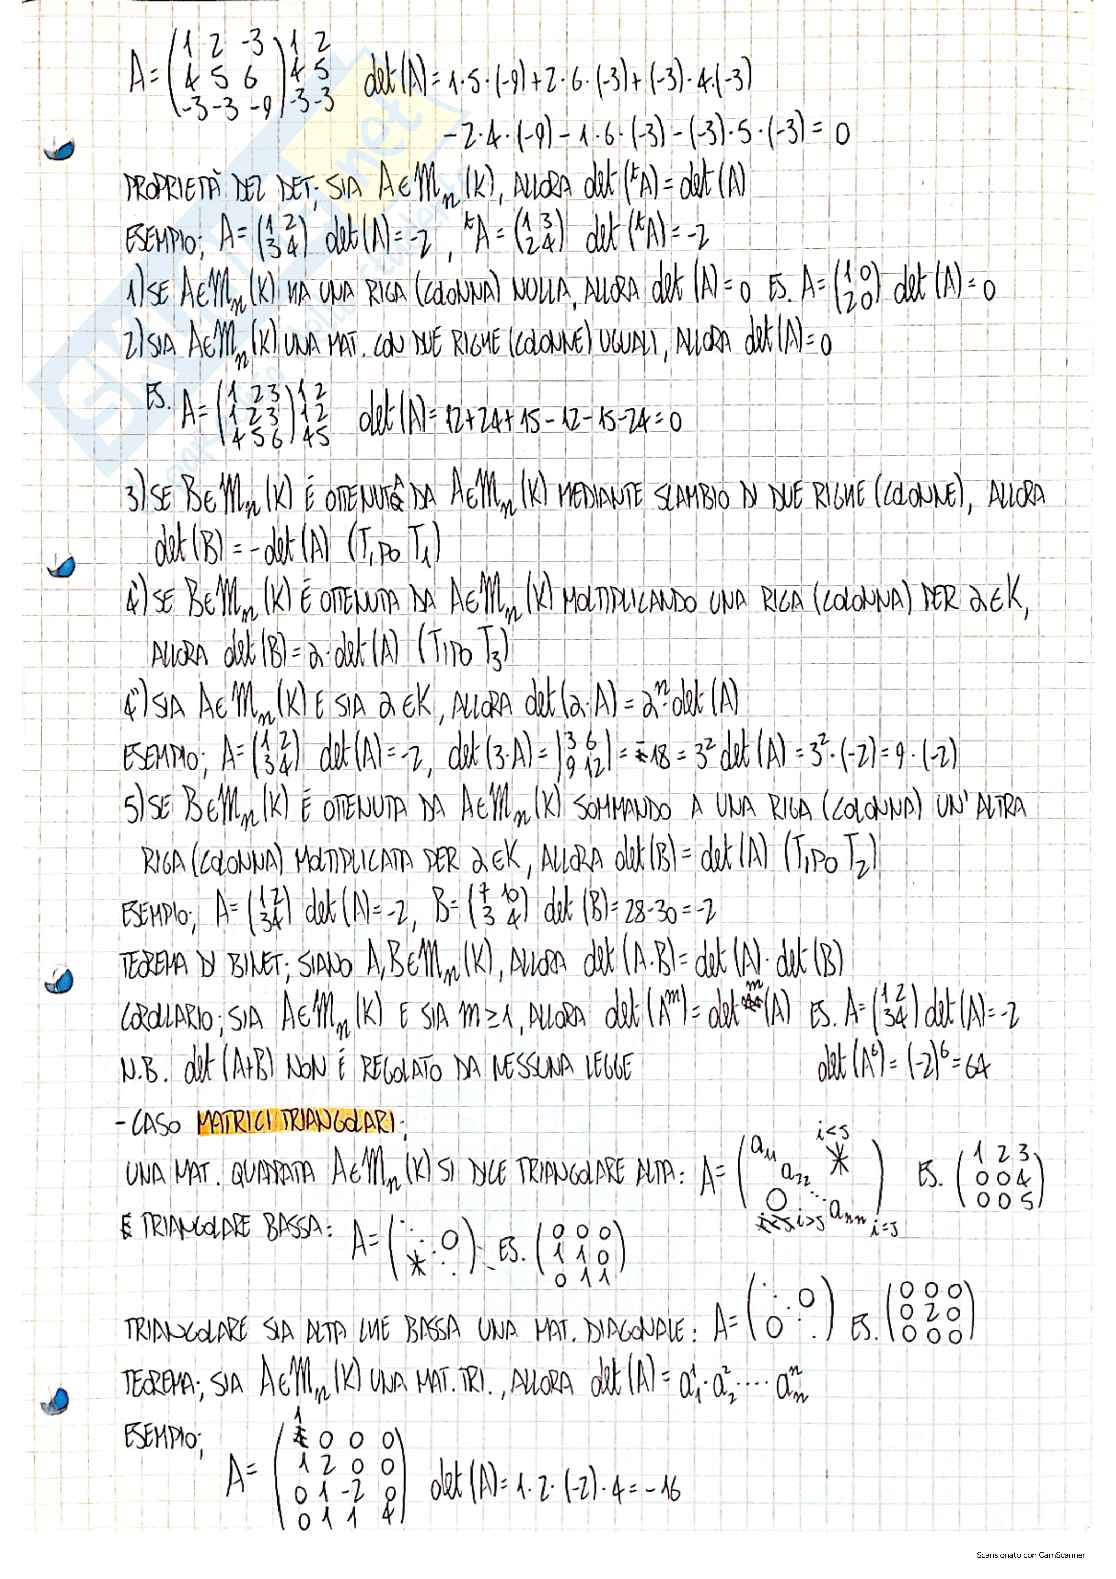 A = (1 2 -3 | 4 5 6 | -3 -3 -9) 1 2 | 4 5 | -3 -3   det(A) = 1·5·(-9)+2·6·(-3)+(-3)·4·(-3)
-2·4·(-9) - 1·6·(-3) - (-3)·5·(-3) = 0
PROPRIETÀ DEL DET; SIA A∈Mn(K), ALLORA det(ᵗA) = det(A)
ESEMPIO; A = (1 2 | 3 4) det(A) = -2, ᵗA = (1 3 | 2 4) det(ᵗA) = -2
1) SE A∈Mn(K) HA UNA RIGA (COLONNA) NULLA, ALLORA det(A) = 0 ES. A = (1 0 | 2 0) det(A) = 0
2) SIA A∈Mn(K) UNA MAT. CON DUE RIGHE (COLONNE) UGUALI, ALLORA det(A) = 0
ES. A = (1 2 3 | 1 2 3 | 4 5 6) 1 2 | 1 2 | 4 5   det(A) = 12+24+15-12-15-24 = 0
3) SE B∈Mn(K) È OTTENUTA DA A∈Mn(K) MEDIANTE SCAMBIO DI DUE RIGHE (COLONNE), ALLORA
det(B) = -det(A) (TIPO T₁)
4') SE B∈Mn(K) È OTTENUTA DA A∈Mn(K) MOLTIPLICANDO UNA RIGA (COLONNA) PER λ∈K,
ALLORA det(B) = λ·det(A) (TIPO T₃)
4'') SIA A∈Mn(K) E SIA λ∈K, ALLORA det(λ·A) = λⁿ·det(A)
ESEMPIO; A = (1 2 | 3 4) det(A) = -2, det(3·A) = |3 6 | 9 12| = -18 = 3² det(A) = 3²·(-2) = 9·(-2)
5) SE B∈Mn(K) È OTTENUTA DA A∈Mn(K) SOMMANDO A UNA RIGA (COLONNA) UN'ALTRA
RIGA (COLONNA) MOLTIPLICATA PER λ∈K, ALLORA det(B) = det(A) (TIPO T₂)
ESEMPIO; A = (1 2 | 3 4) det(A) = -2, B = (7 10 | 3 4) det(B) = 28-30 = -2
TEOREMA DI BINET; SIANO A,B∈Mn(K), ALLORA det(A·B) = det(A)·det(B)
COROLLARIO; SIA A∈Mn(K) E SIA m≥1, ALLORA det(Aᵐ) = detᵐ(A) ES. A = (1 2 | 3 4) det(A) = -2
N.B. det(A+B) NON È REGOLATO DA NESSUNA LEGGE   det(A⁶) = (-2)⁶ = 64
- CASO MATRICI TRIANGOLARI;
UNA MAT. QUADRATA A∈Mn(K) SI DICE TRIANGOLARE ALTA: A = (a₁₁ a₂₂ ⋱ aₙₙ, i<j *, 0 i>j, i=j) ES. (1 2 3 | 0 0 4 | 0 0 5)
E TRIANGOLARE BASSA: A = (⋱ 0 | * ⋱). ES. (0 0 0 | 1 1 0 | 0 1 1)
TRIANGOLARE SIA ALTA CHE BASSA UNA MAT. DIAGONALE: A = (⋱ 0 | 0 ⋱) ES. (0 0 0 | 0 2 0 | 0 0 0)
TEOREMA; SIA A∈Mn(K) UNA MAT. TRI., ALLORA det(A) = a¹₁·a²₂·...·aⁿₙ
ESEMPIO;
A = (1 0 0 0 | 1 2 0 0 | 0 1 -2 0 | 0 1 1 4) det(A) = 1·2·(-2)·4 = -16
Scansionato con CamScanner